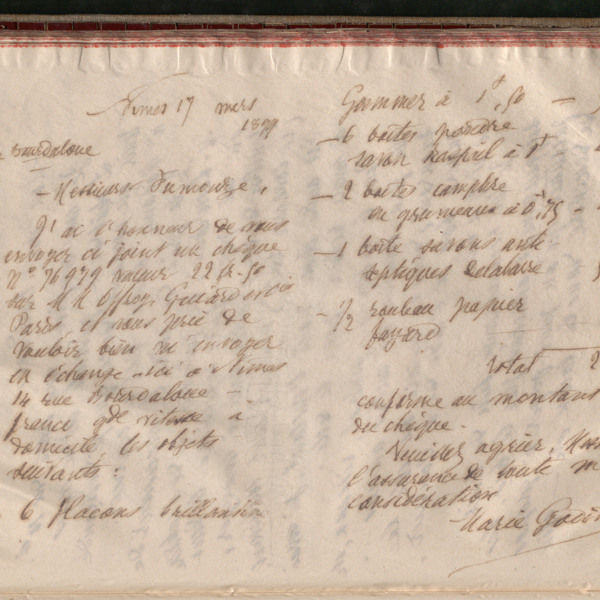 Nimes 17 mars
1899
Bourdaloue
- Messieurs Fumouze,
J'ai l'honneur de vous
envoyer ci joint un chèque
N° 76979 valeur 22 fr. 50
sur M M Offroy, Guiard et Cie
Paris, et vous prie de
vouloir bien m'envoyer
en échange ici à Nimes
14 rue Bourdaloue -
franco gde vitesse à
domicile, les objets
suivants :
6 flacons brillantine
Grammer à 1f,50 -
- 6 boîtes poudre
savon Raspail à 1f -
- 2 boîtes camphre
en grumeaux à 0f,75 -
- 1 boîte savons anti-
septiques
- 1/2 rouleau papier
fayard
Total 2
conforme au montant
du chèque.
Veuillez agréer, Mess
l'assurance de toute m
considération
Marie Godin